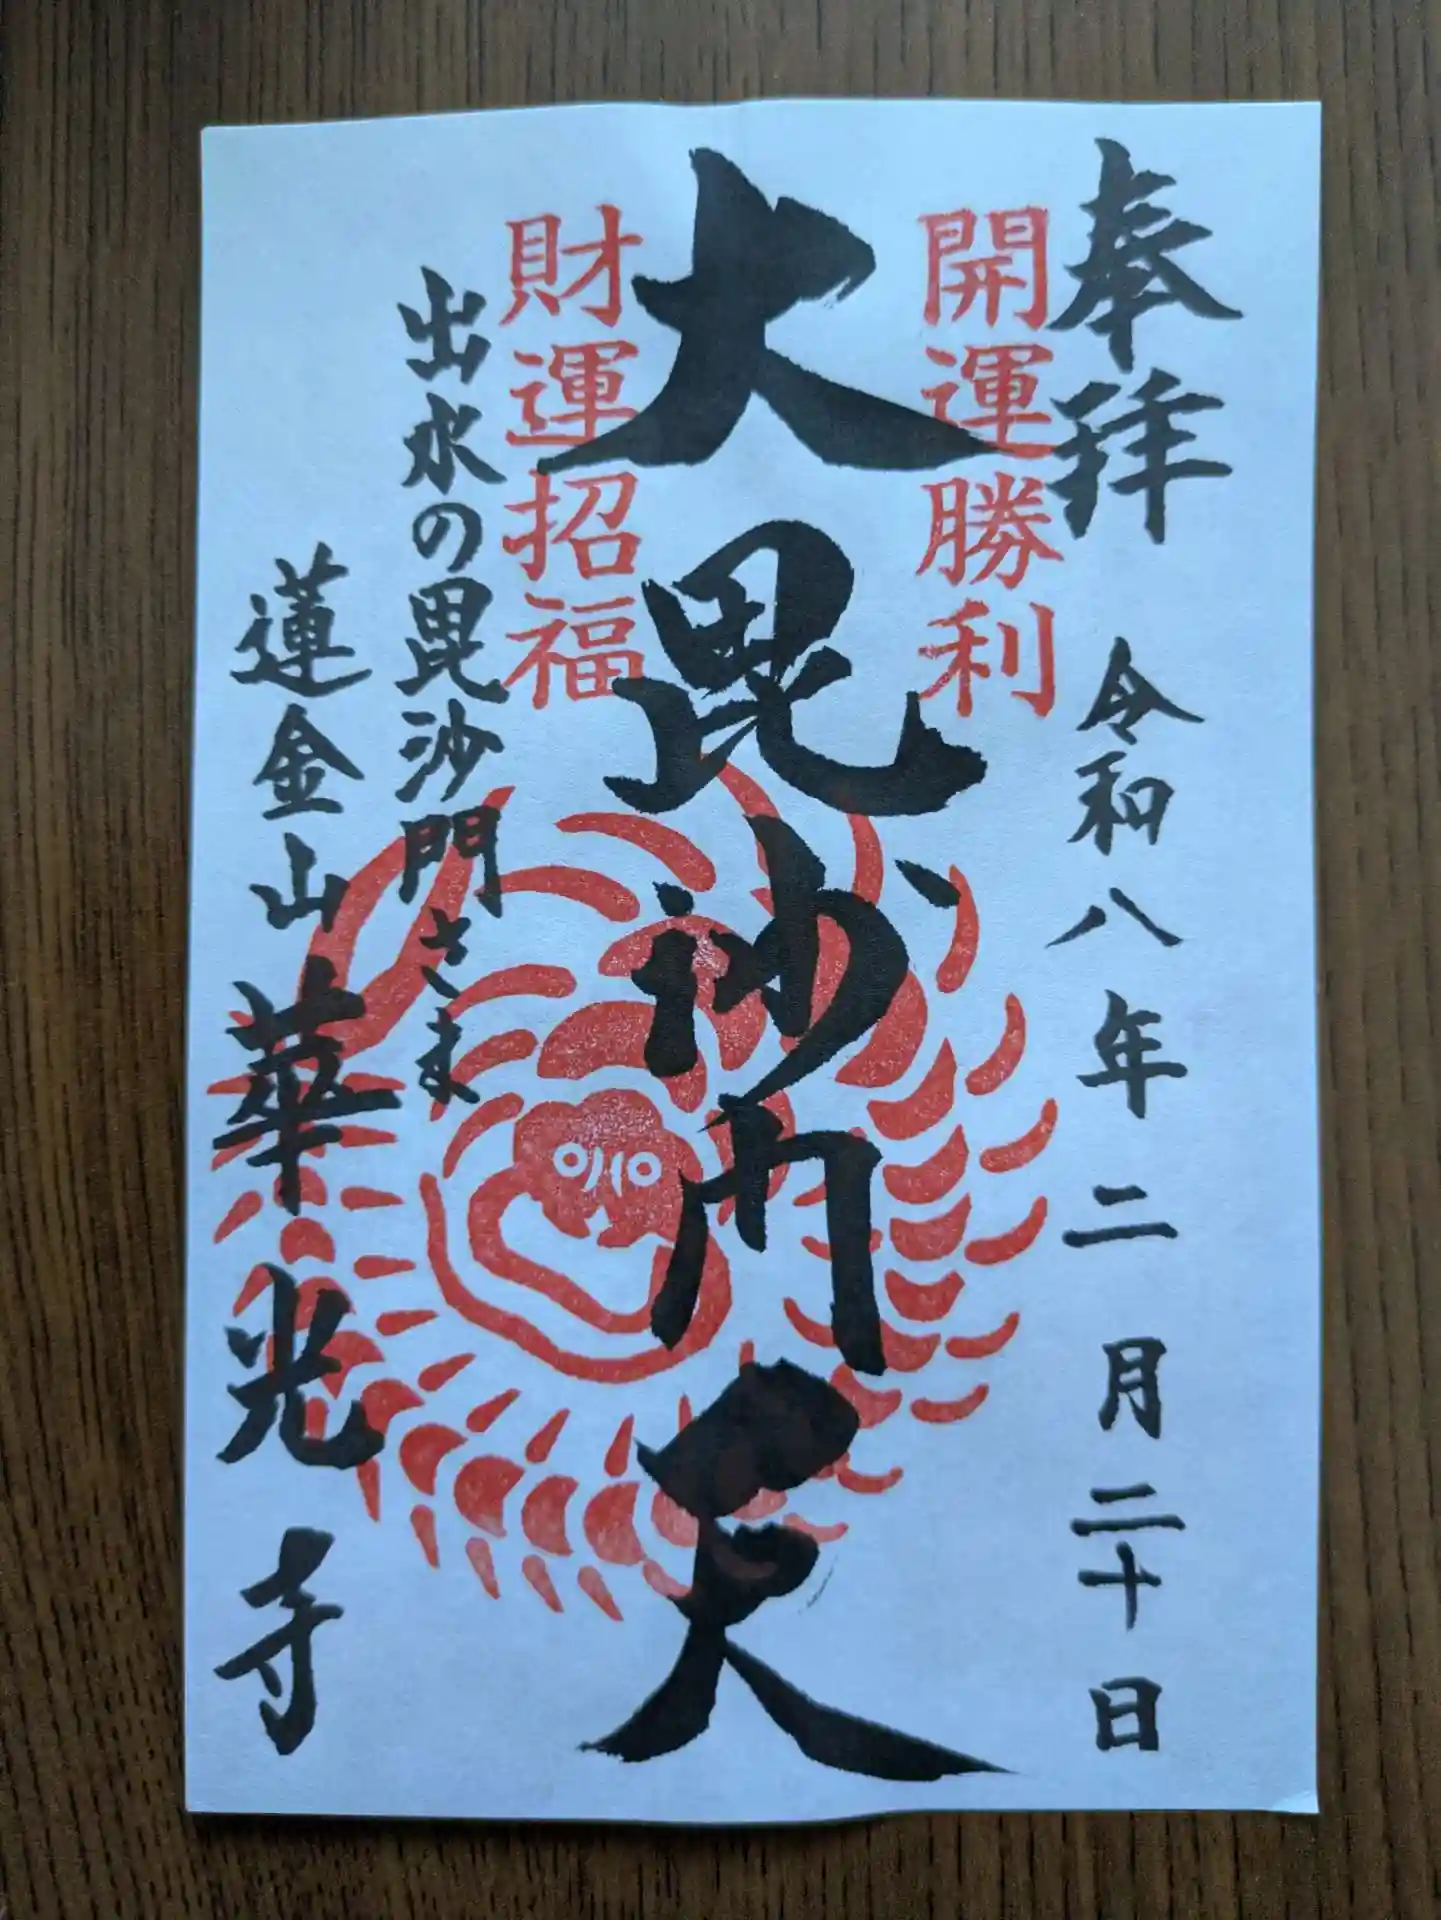 奉拝
令和八年二月二十日
開運勝利
大毘沙門天
財運招福
出水の毘沙門さま
蓮金山
華光寺